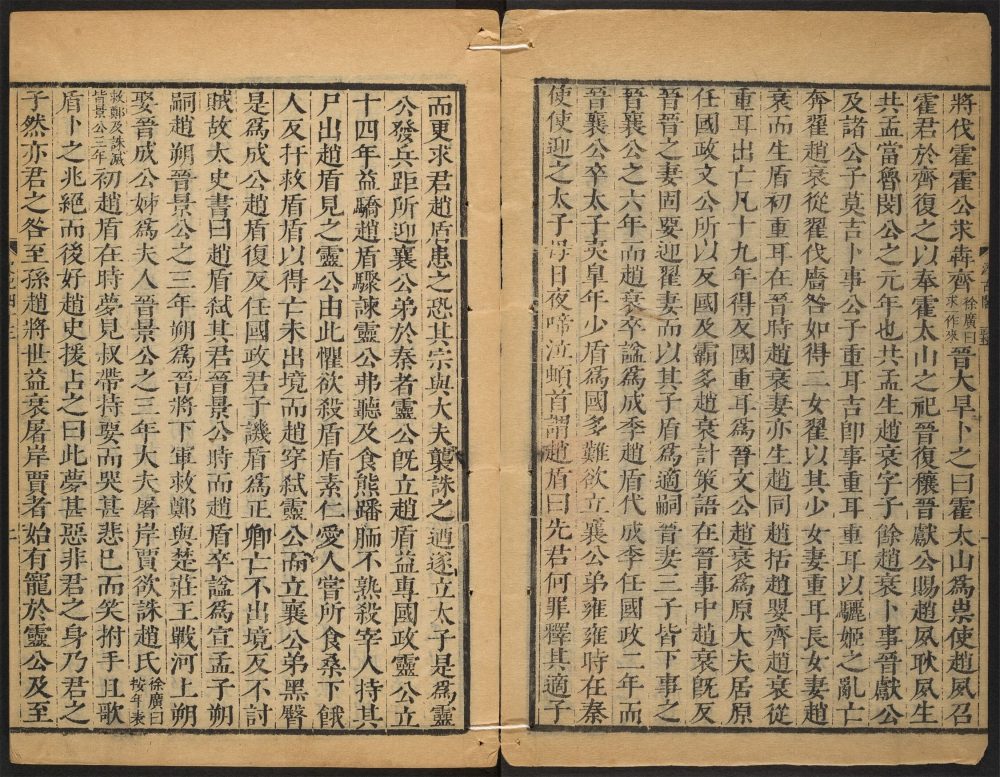 將伐霍霍公求犇齊徐廣曰求作來晉大旱卜之曰霍太山爲祟使趙夙召
霍君於齊復之以奉霍太山之祀晉復穰晉獻公賜趙夙耿夙生
共孟當魯閔公之元年也共孟生趙衰字子餘趙衰卜事晉獻公
及諸公子莫吉卜事公子重耳吉卽事重耳重耳以驪姬之亂亡
奔翟趙衰從翟伐廧咎如得二女翟以其少女妻重耳長女妻趙
衰而生盾初重耳在晉時趙衰妻亦生趙同趙括趙嬰齊趙衰從
重耳出亡凡十九年得反國重耳爲晉文公趙衰爲原大夫居原
任國政文公所以反國及霸多趙衰計策語在晉事中趙衰旣反
晉晉之妻固要迎翟妻而以其子盾爲適嗣晉妻三子皆下事之
晉襄公之六年而趙衰卒諡爲成季趙盾代成季任國政二年而
晉襄公卒太子夷皐年少盾爲國多難欲立襄公弟雍雍時在秦
使使迎之太子母日夜啼泣頓首謂趙盾曰先君何罪釋其適子
汲古閣
而更求君趙盾患之恐其宗與大夫襲誅之迺遂立太子是爲靈
公發兵距所迎襄公弟於秦者靈公旣立趙盾益專國政靈公立
十四年益驕趙盾驟諫靈公弗聽及食熊蹯胹不熟殺宰人持其
尸出趙盾見之靈公由此懼欲殺盾盾素仁愛人嘗所食桑下餓
人反扞救盾盾以得亡未出境而趙穿弑靈公而立襄公弟黑臀
是爲成公趙盾復反任國政君子譏盾爲正卿亡不出境反不討
賊故太史書曰趙盾弑其君晉景公時而趙盾卒諡爲宣孟子朔
嗣趙朔晉景公之三年朔爲晉將下軍救鄭與楚莊王戰河上朔
娶晉成公姊爲夫人晉景公之三年大夫屠岸賈欲誅趙氏徐廣曰按年表
救鄭及誅滅皆景公三年初趙盾在時夢見叔帶持要而哭甚悲已而笑拊手且歌
盾卜之兆絕而後好趙史援占之曰此夢甚惡非君之身乃君之
子然亦君之咎至孫趙將世益衰屠岸賈者始有寵於靈公及至